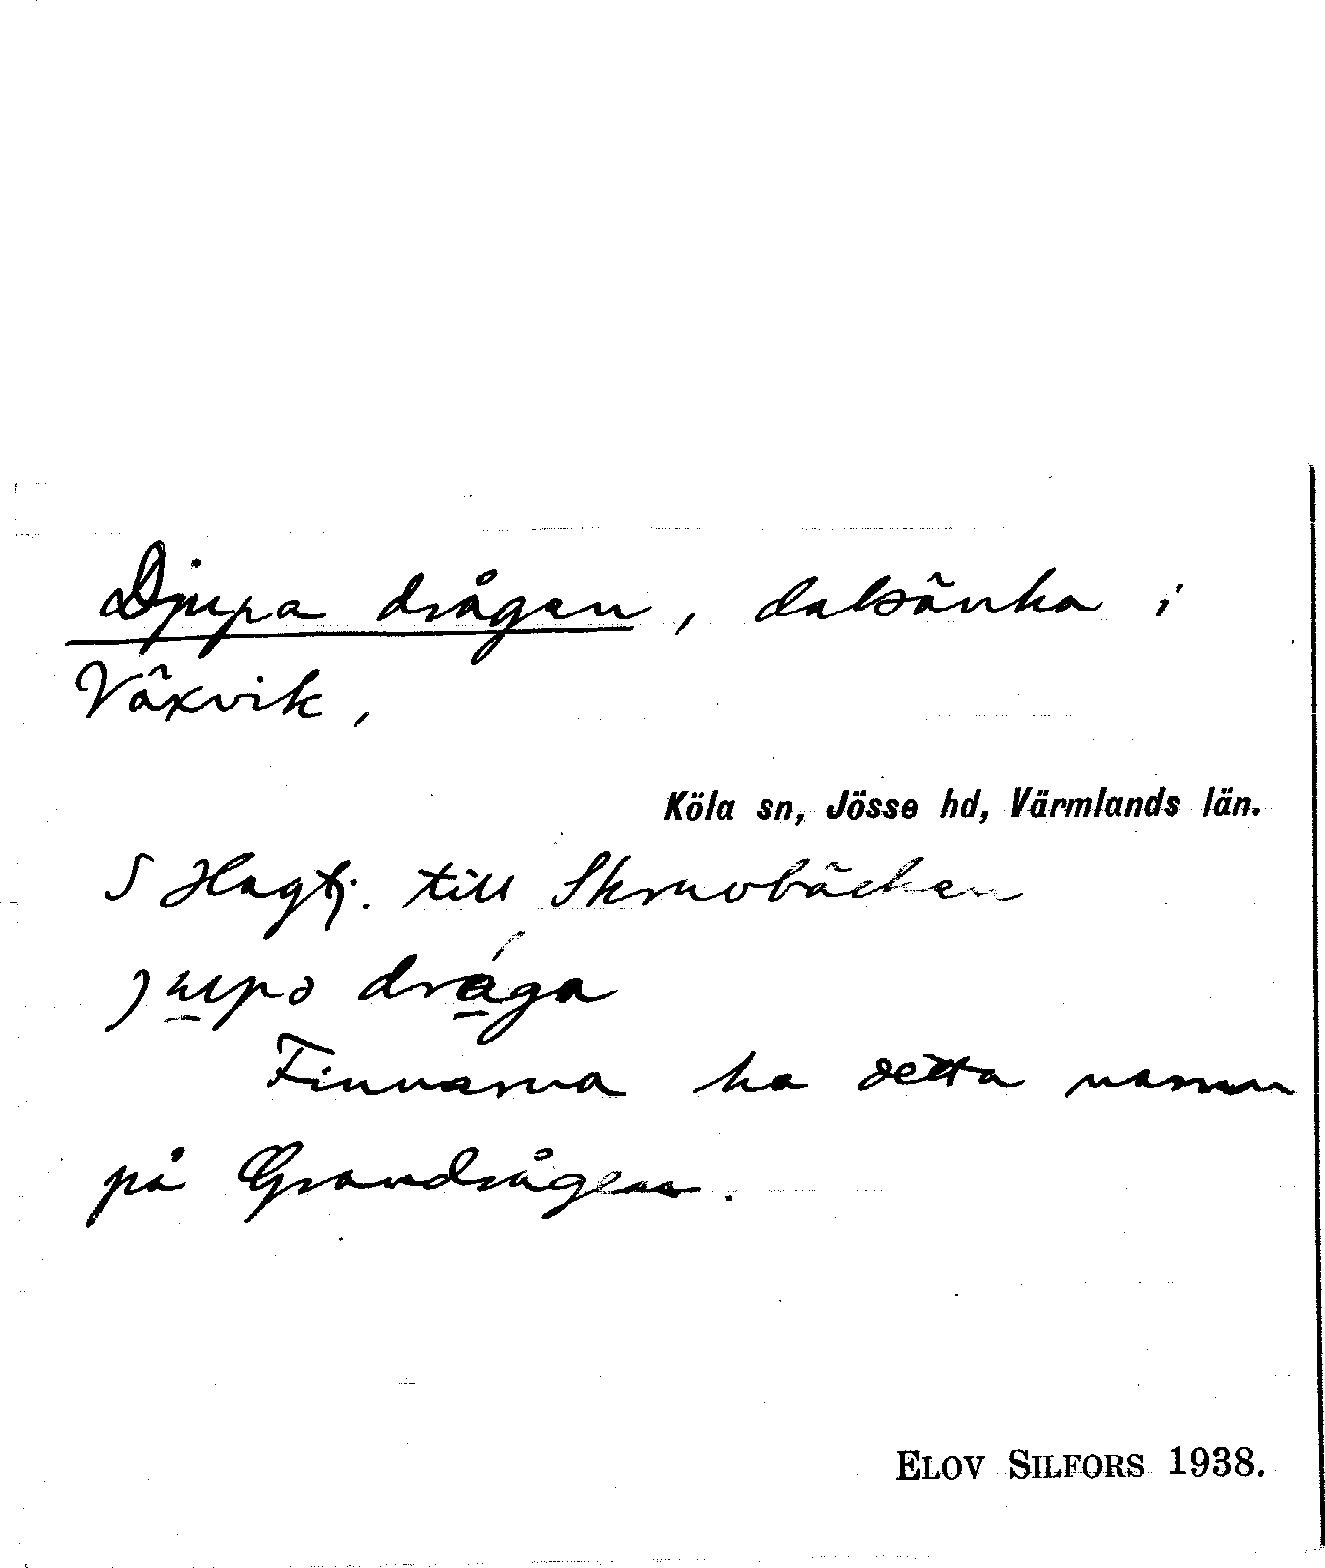 Djupa drågen, dalsänka i
Växvik,
Köla sn, Jösse hd, Värmlands län.
S Hagtj. till Skruvbäcken
jupə dråga
Finnarna ha detta namn
på Grandrågen.
ELOV SILFORS 1938.